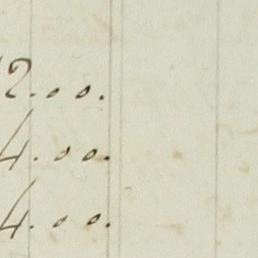 2.00.
4.00.
4.00.